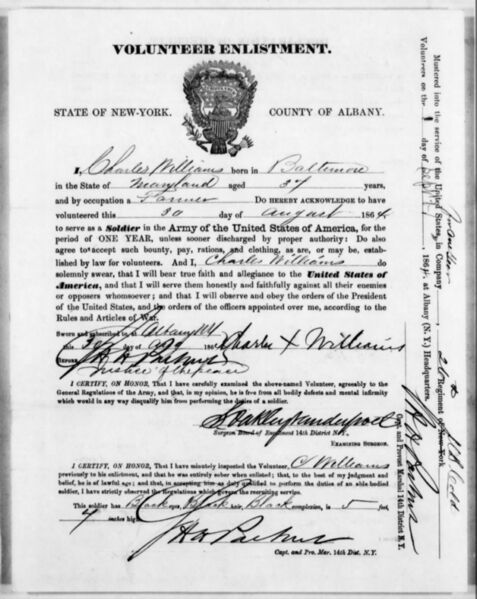 VOLUNTEER ENLISTMENT.
STATE OF NEW-YORK. COUNTY OF ALBANY.
I, Charles Williams born in Baltimore
in the State of Maryland aged 37 years,
and by occupation a Farmer Do HEREBY ACKNOWLEDGE to have
volunteered this 30 day of August 1864
to serve as a Soldier in the Army of the United States of America, for
the period of ONE YEAR, unless sooner discharged by proper authority: Do also
agree to accept such bounty, pay, rations, and clothing, as are, or may be, estab-
lished by law for volunteers. And I, Charles Williams do
solemnly swear, that I will bear true faith and allegiance to the United States of
America, and that I will serve them honestly and faithfully against all their enemies
or opposers whomsoever; and that I will observe and obey the orders of the President
of the United States, and the orders of the officers appointed over me, according to the
Rules and Articles of War.
Sworn and subscribed to, at Albany NY
this 30 day of Aug 1864 Charles X Williams
BEFORE J H A Parkins
Justice of the peace
I CERTIFY, ON HONOR, That I have carefully examined the above-named Volunteer, agreeably to the
General Regulations of the Army, and that, in my opinion, he is free from all bodily defects and mental infirmity
which would in any way disqualify him from performing the duties of a soldier.
S Oakley Vanderpoel
Surgeon Board of Enrollment 14th District N.Y.
EXAMINING SURGEON.
I CERTIFY, ON HONOR, That I have minutely inspected the Volunteer, C Williams
previously to his enlistment, and that he was entirely sober when enlisted; that, to the best of my judgment and
belief, he is of lawful age; and that, in accepting him as duly qualified to perform the duties of an able bodied
soldier, I have strictly observed the Regulations which govern the recruiting service.
This soldier has Black eyes, Black hair, Black complexion, is 5 feet,
7 inches high.
Capt. and Pro. Mar. 14th Dist. N.Y.
Mustered into the service of the United States, in Company
Volunteers on the 1 day of Sept, 1864, at Albany (N. Y.) Headquarters.
26th Regiment of New-York
Capt. and Provost Marshal 14th District N.Y.